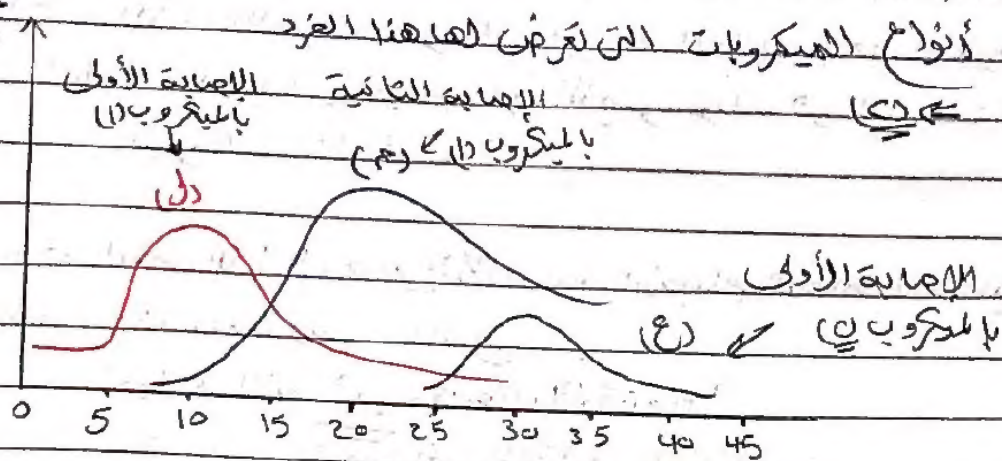 أنواع الميكروبات التى تعرض لها هذا الفرد
⇐ (٢)
الإصابة الأولى
بالميكروب (١)
(ل)
الإصابة الثانية
بالميكروب (١)
(م)
الإصابة الأولى
بالميكروب (٢)
(ع)
0 5 10 15 20 25 30 35 40 45